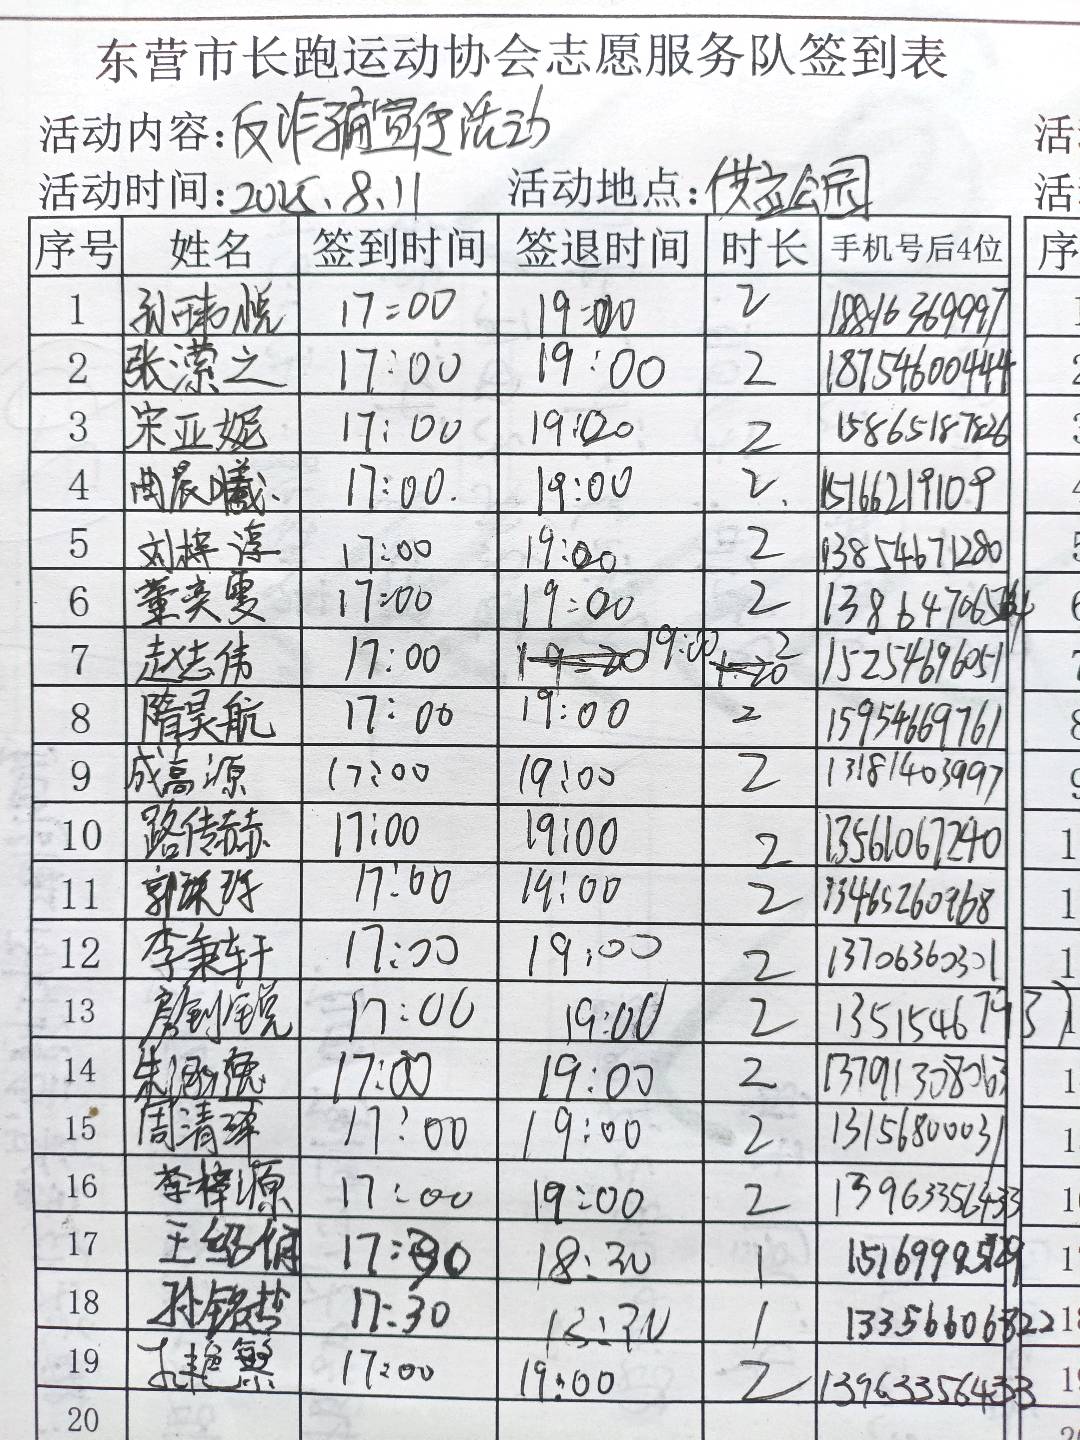 东营市长跑运动协会志愿服务队签到表
活动内容:反诈骗宣传活动
活动时间:2025.8.11 活动地点: 公园
序号 姓名 签到时间 签退时间 时长 手机号后4位
1 孙 悦 17:00 19:00 2 18816369997
2 张潆之 17:00 19:00 2 18754600444
3 宋亚妮 17:00 19:00 2 15865187826
4 曲晨曦 17:00 19:00 2 15166219109
5 刘梓淳 17:00 19:00 2 13854671280
6 董奕雯 17:00 19:00 2
7 赵志伟 17:00 19:00 2 15254696051
8 隋昊航 17:00 19:00 2 15954669761
9 成高源 17:00 19:00 2 13181403997
10 路传赫 17:00 19:00 2 13561067240
11 郭 17:00 19:00 2 13465260968
12 李秉轩 17:00 19:00 2 13706360301
13 17:00 19:00 2 13515467933
14 朱 17:00 19:00 2 13791308063
15 周清泽 17:00 19:00 2 13156800031
16 李梓源 17:00 19:00 2 13963356433
17 王绍 17:30 18:30 1
18 孙铭哲 17:30 18:30 1 13356606822
19 17:00 19:00 2 13963356433
20